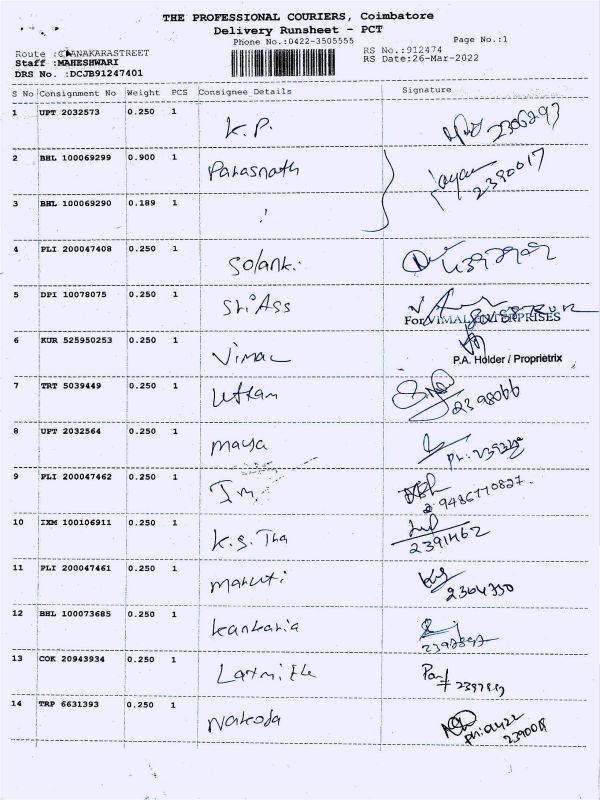 THE PROFESSIONAL COURIERS, Coimbatore
Delivery Runsheet - PCT
Phone No.:0422-3505555 Page No.:1
Route :CHANAKARASTREET RS No.:912474
Staff :MAHESHWARI RS Date:26-Mar-2022
DRS No. :DCJB91247401
S No Consignment No Weight PCS Consignee Details Signature
1 UPT 2032573 0.250 1 K.P. 2306293
2 BHL 100069299 0.900 1 Parasnath 2390017
3 BHL 100069290 0.189 1
4 PLI 200047408 0.250 1 Solanki
5 DPI 10078075 0.250 1 Sri Ass
For VIMAL ENTERPRISES
6 KUR 525950253 0.250 1 Vimal
P.A. Holder / Proprietrix
7 TRT 5039449 0.250 1 Uttam 2398066
8 UPT 2032564 0.250 1 maya
9 PLI 200047462 0.250 1 9486770827.
10 IXM 100106911 0.250 1 K.S. Tha 2391462
11 PLI 200047461 0.250 1 maruti 2304330
12 BHL 100073685 0.250 1 Kankaria
13 COK 20943934 0.250 1
14 TRP 6631393 0.250 1 Nakoda 2390018